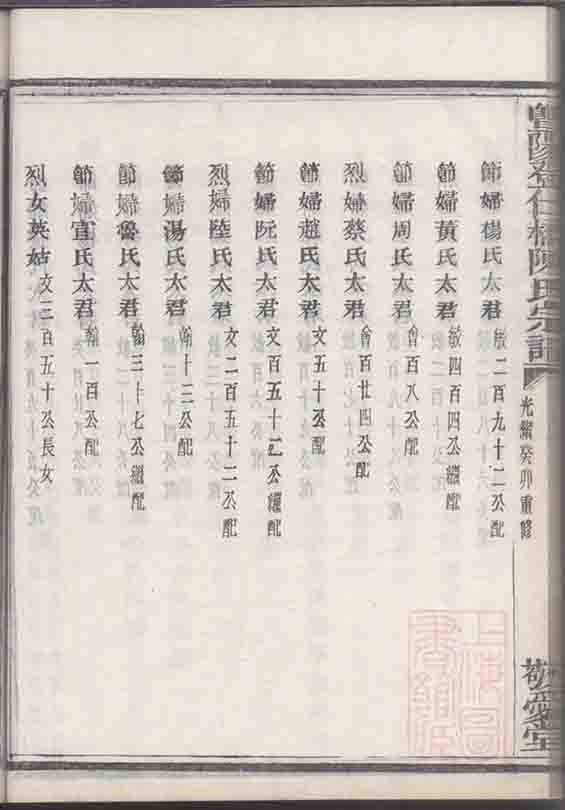 暨陽孝仁橋陳氏宗譜
光緒癸卯重修
敬愛堂
節婦楊氏太君 敏二百九十二公配
節婦黃氏太君 敏四百四公繼配
節婦周氏太君 會百八公配
烈婦蔡氏太君 會百廿四公配
節婦趙氏太君 文五十公配
節婦阮氏太君 文百五十二公繼配
烈婦陸氏太君 文二百五十二公配
節婦湯氏太君 翰十三公配
節婦魯氏太君 翰三十七公繼配
節婦宣氏太君 翰一百公配
烈女英姑 文二百五十公長女
上海圖書館藏